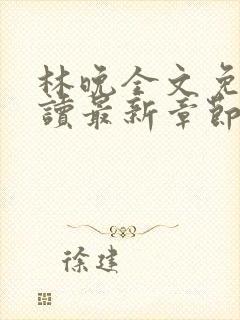 林晚全文免
讀最新章節
徐建